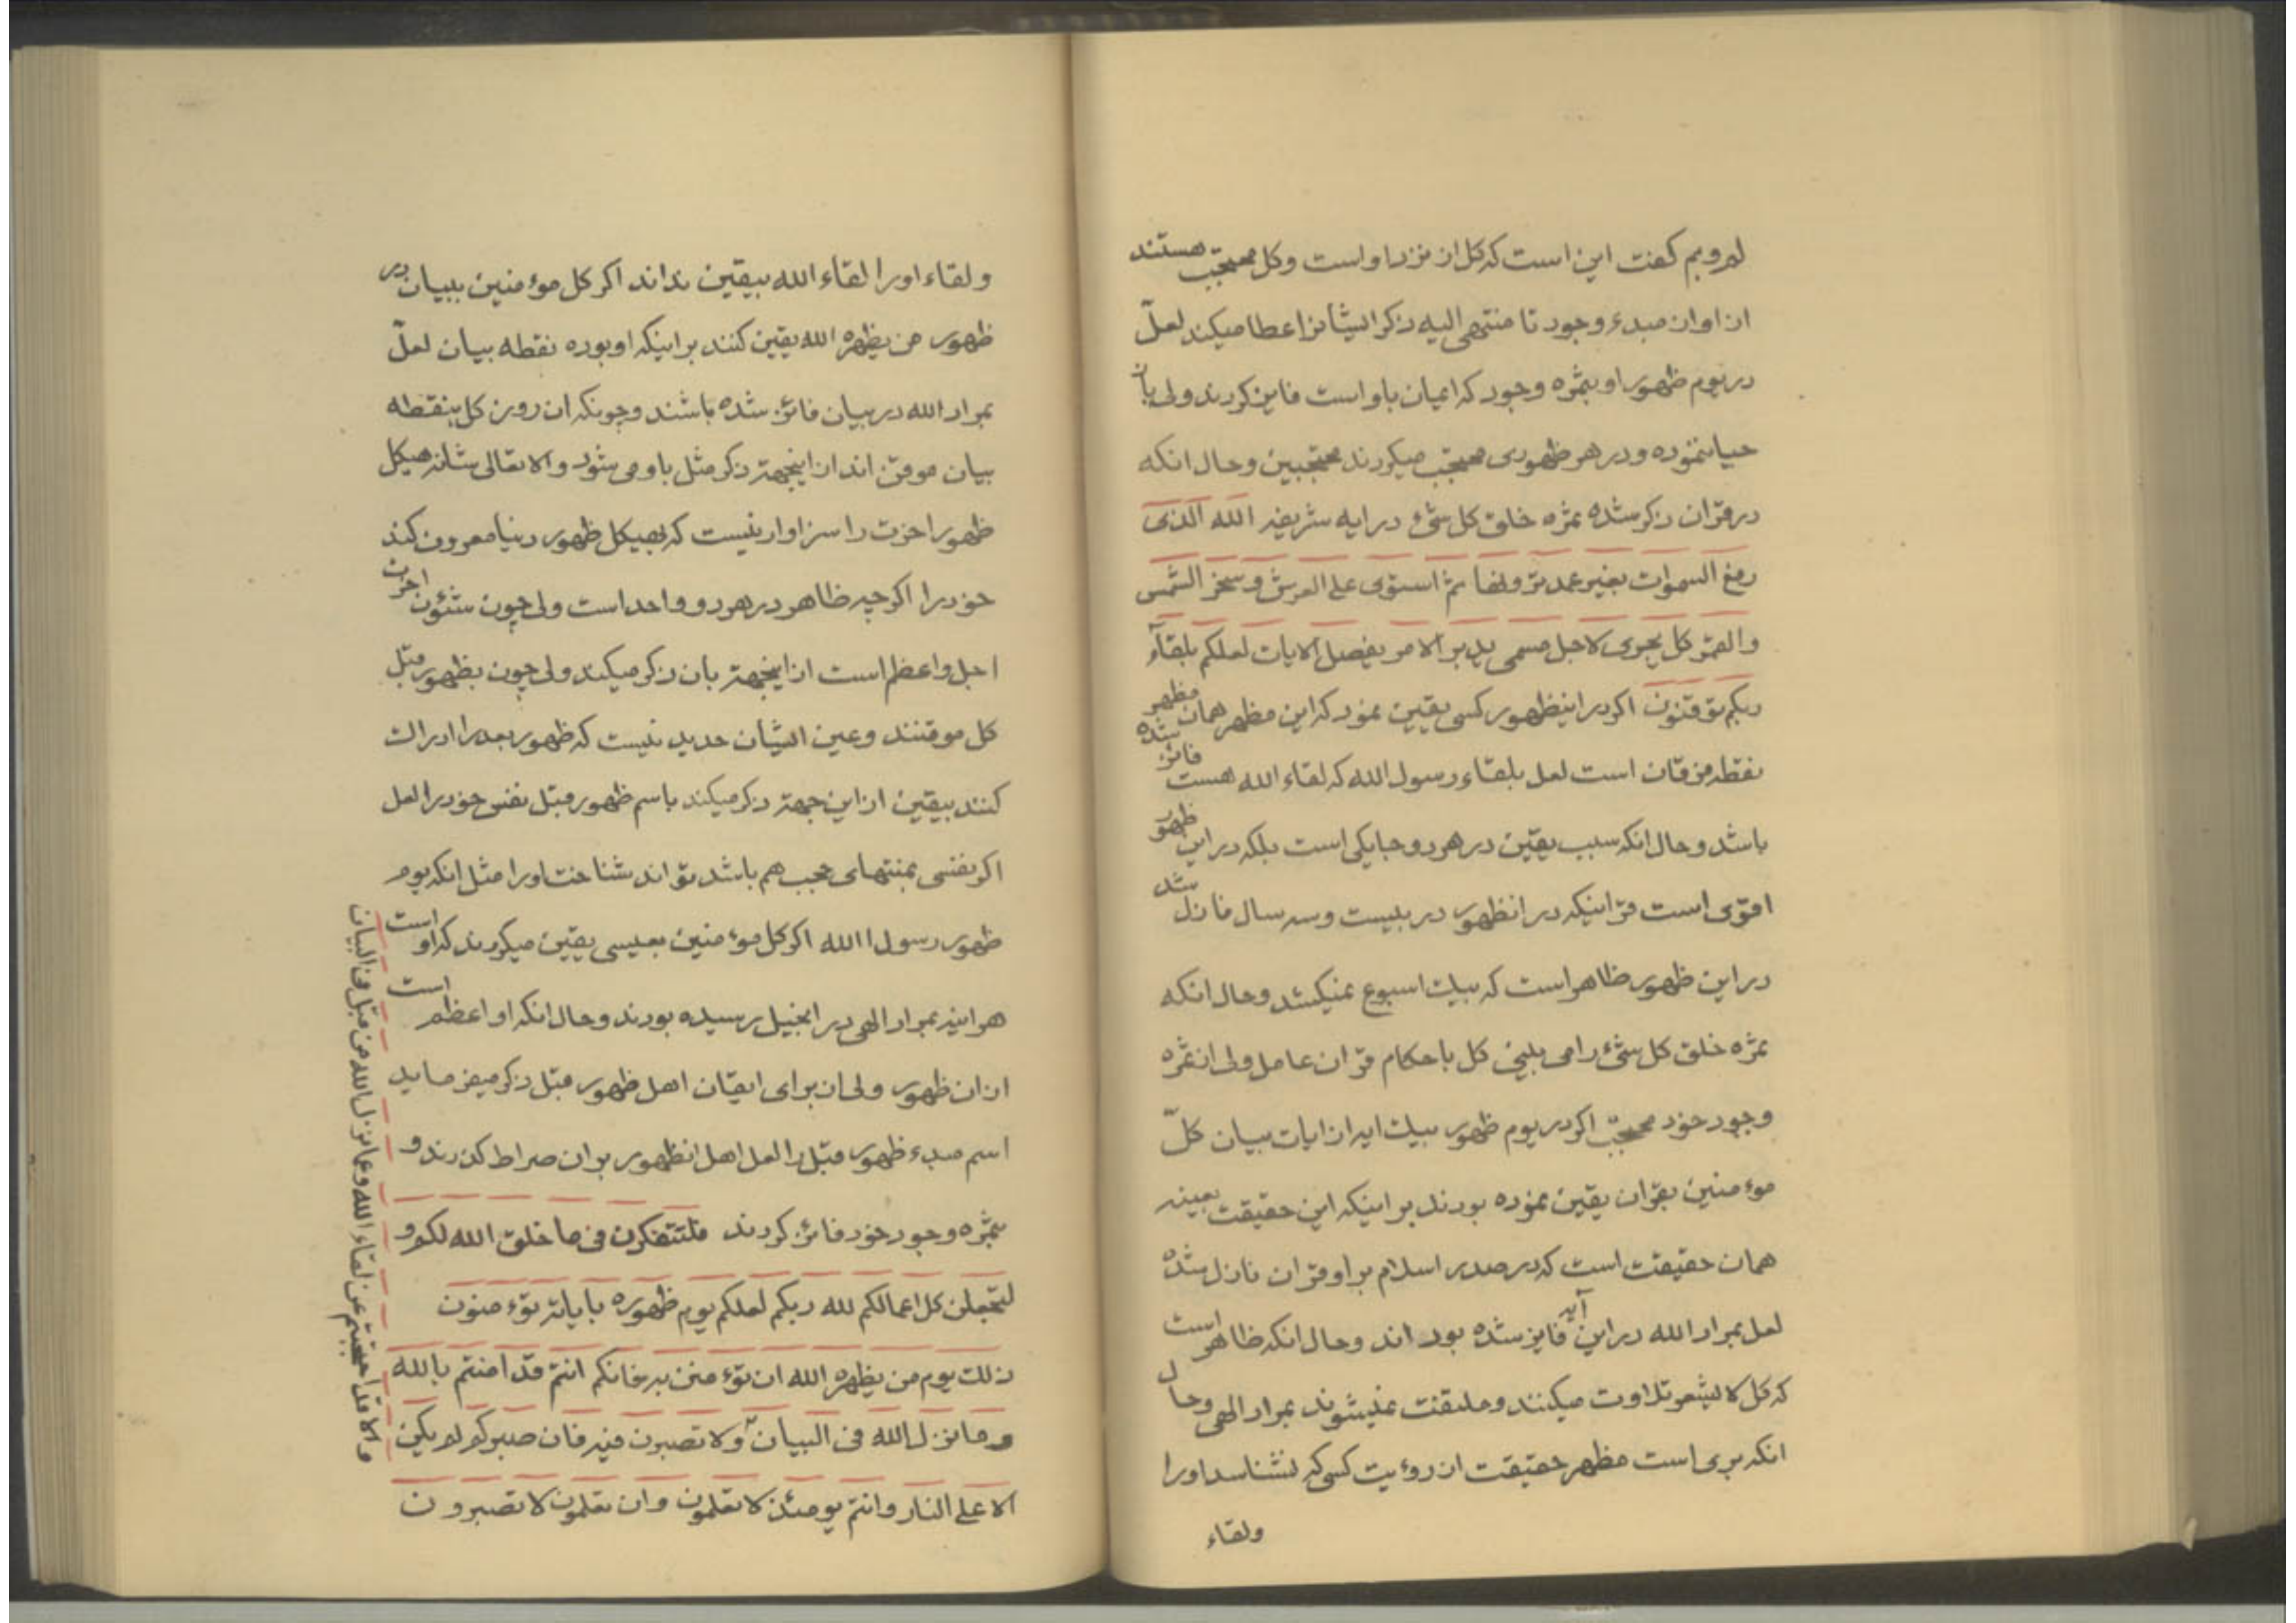 لم و بم گفت این است که کل از نزد او است و کل محتجب هستند
از او ان مبدء وجود تا منتهی الیه ذکر ایشانرا عطا میکند لعلّ
در یوم ظهور او بثمره وجود که ایمان باو است فایز گردند ولی با ان
حیا ننموده و در هر ظهوری محتجب میگردند محتجبین و حال انکه
در قران ذکر شده ثمره خلق کل شیء در ایه شریفه الله الذی
رفع السموات بغیر عمد ترونها ثم استوی علی العرش و سخر الشمس
والقمر کل یجری لاجل مسمی یدبر الامر یفصل الایات لعلکم بلقآء
ربکم توقنون اکر در اینظهور کسی یقین نمود که این مظهر همان مظهر
نقطه فرقان است لعل بلقاء رسول الله که لقاء الله هست فائز شده
باشد و حال انکه سبب یقین در هر دو جا یکی است بلکه در این ظهور
اقوی است قرا اینکه در انظهور در بیست و سه سال نازل شد
در این ظهور ظاهر است که بیک اسبوع نمیکشد و حال انکه
ثمره خلق کل شیء را می بینی کل باحکام قران عامل ولی از ثمره
وجود خود محتجب اکر در یوم ظهور بیک ایه از ایات بیان کلّ
موءمنین بقران یقین نموده بودند بر اینکه این حقیقت بعینه
همان حقیقت است که در صدر اسلام بر او قران نازل شده
لعل بمراد الله در این آیه فایز شده بود اند و حال انکه ظاهر است
که کل لا یشعر تلاوت میکنند و ملتفت نمیشوند بمراد الهی و حال
انکه بری است مظهر حقیقت از روءیت کسی که نشناسد او را
ولقاء
ولقاء اورا لقاء الله بیقین نداند اکر کل موءمنین ببیان در
ظهور من یظهره الله یقین کنند بر اینکه او بوده نقطه بیان لعلّ
بمراد الله در بیان فائز شده باشند و چونکه ان روز کل بنقطه
بیان موقن اند از اینجهة ذکر مثل باو می شود و الا تعالی شانه هیکل
ظهور اخرت را سزاوار نیست که بهیکل ظهور دنیا معروف کند
خود را اکر چه ظاهر در هر دو واحد است ولی چون شئون اخرت
اجل و اعظم است از اینجهة بان ذکر میکند ولی چون بظهور قبل
کل موقنند و عین ایشان حدید نیست که ظهور بعد را ادراک
کنند بیقین از این جهة ذکر میکند باسم ظهور قبل نفس خود را لعل
اکر نفسی بمنتهای حجب هم باشد تواند شناخت او را مثل انکه یوم
ظهور رسول الله اکر کل موءمنین بعیسی یقین میکردند که او است
هر اینه بمراد الهی در انجیل رسیده بودند و حال انکه او اعظم است
از ان ظهور ولی از برای ایقان اهل ظهور قبل ذکر میفرماید
اسم مبدء ظهور قبل را لعل اهل انظهور بر ان صراط گذرند و
بثمره وجود خود فائز گردند فلتتفکرن فی ما خلق الله لکم و
لتجعلن کل اعمالکم لله ربکم لعلکم یوم ظهوره بایاته توءمنون
ذلک یوم من یظهره الله ان توءمنن به فانکم انتم قد امنتم بالله
و ما نزل الله فی البیان و لا تصبرون فیه فان صبرکم لم یکن
الا علی النار و انتم یومئذ لا تعلمون و ان تعلمون لا تصبرون
و الا قد احتجبتم عن لقاء الله و عما نزل الله من قبل فی البیان